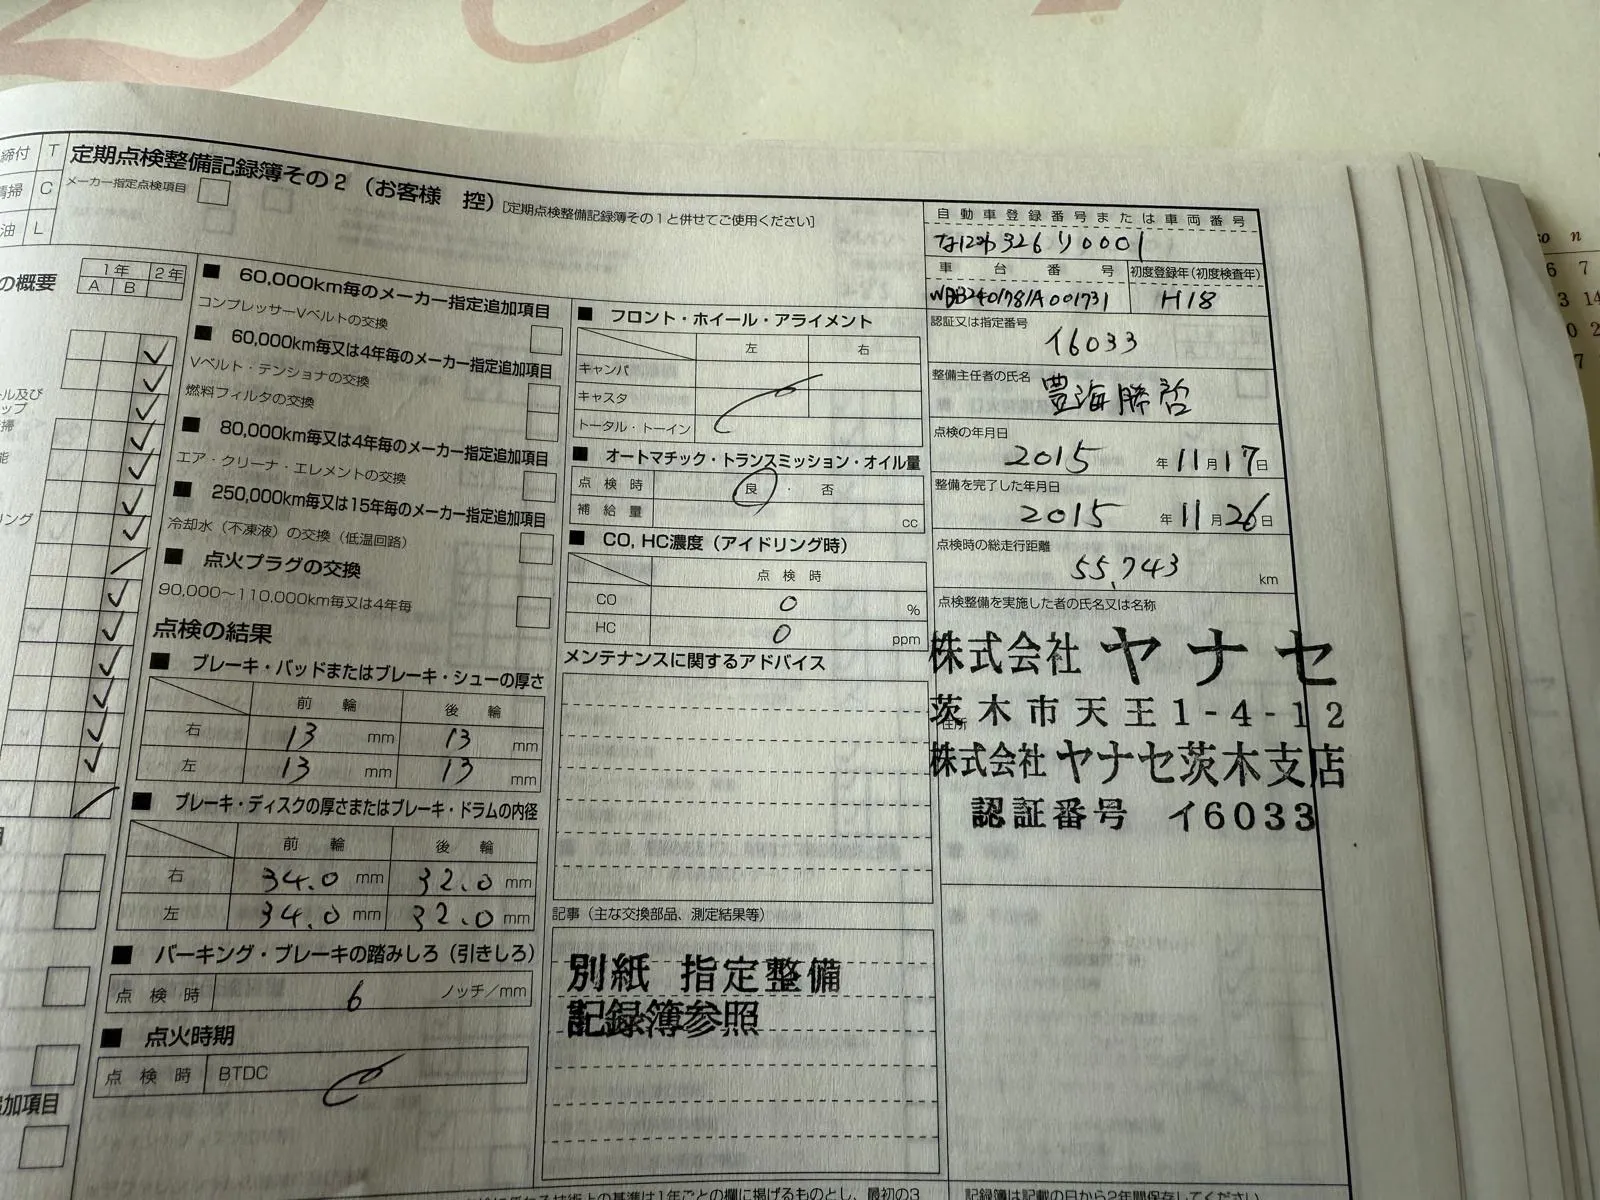 締付 T
清掃 C
油 L
定期点検整備記録簿その2（お客様 控）[定期点検整備記録簿その1と併せてご使用ください]
メーカー指定点検項目
の概要
1年 2年
A B
ル及び
ップ
掃
能
リング
■ 60,000km毎のメーカー指定追加項目
コンプレッサーVベルトの交換
■ 60,000km毎又は4年毎のメーカー指定追加項目
Vベルト・テンショナの交換
燃料フィルタの交換
■ 80,000km毎又は4年毎のメーカー指定追加項目
エア・クリーナ・エレメントの交換
■ 250,000km毎又は15年毎のメーカー指定追加項目
冷却水（不凍液）の交換（低温回路）
■ 点火プラグの交換
90,000〜110.000km毎又は4年毎
点検の結果
■ ブレーキ・パッドまたはブレーキ・シューの厚さ
前輪 後輪
右 13 mm 13 mm
左 13 mm 13 mm
■ ブレーキ・ディスクの厚さまたはブレーキ・ドラムの内径
前輪 後輪
右 34.0 mm 32.0 mm
左 34.0 mm 32.0 mm
■ パーキング・ブレーキの踏みしろ（引きしろ）
点検時 6 ノッチ/mm
■ 点火時期
点検時 BTDC
追加項目
■ フロント・ホイール・アライメント
左 右
キャンバ
キャスタ
トータル・トーイン
■ オートマチック・トランスミッション・オイル量
点検時 良・否
補給量 cc
■ CO, HC濃度（アイドリング時）
点検時
CO 0 %
HC 0 ppm
メンテナンスに関するアドバイス
記事（主な交換部品、測定結果等）
別紙 指定整備
記録簿参照
自動車登録番号または車両番号
326 り 0001
車台番号 初度登録年(初度検査年)
WDB2401781A001731 H18
認証又は指定番号
イ6033
整備主任者の氏名
豊海勝哲
点検の年月日
2015 年 11 月 17 日
整備を完了した年月日
2015 年 11 月 26 日
点検時の総走行距離
55,743 km
点検整備を実施した者の氏名又は名称
株式会社 ヤナセ
茨木市天王1-4-12
住所
株式会社 ヤナセ茨木支店
認証番号 イ6033
記録簿は記載の日から2年間保存してください